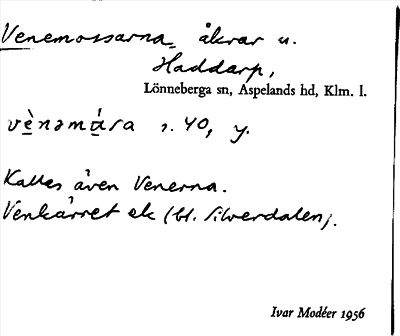 Venemossarna, åkrar u.
Haddarp,
Lönneberga sn, Aspelands hd, Klm. l.
vènəmássa s. 40, y.
Kallas även Venerna.
Venkärret ek (bl. Silverdalen).
Ivar Modéer 1956